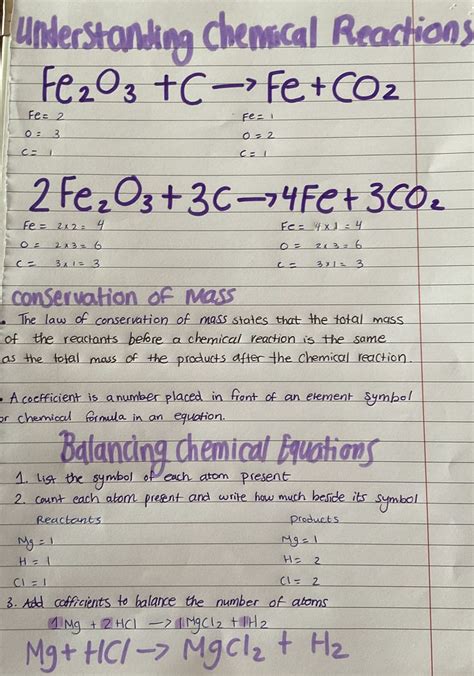 Understanding Chemical Reactions
Fe₂O₃ + C → Fe + CO₂
Fe = 2 Fe = 1
O = 3 O = 2
C = 1 C = 1
2Fe₂O₃ + 3C → 4Fe + 3CO₂
Fe = 2x2 = 4 Fe = 4x1 = 4
O = 2x3 = 6 O = 2x3 = 6
C = 3x1 = 3 C = 3x1 = 3
conservation of Mass
• The law of conservation of mass states that the total mass
of the reactants before a chemical reaction is the same
as the total mass of the products after the chemical reaction.
• A coefficient is a number placed in front of an element symbol
or chemical formula in an equation.
Balancing Chemical Equations
1. list the symbol of each atom present
2. count each atom present and write how much beside its symbol
Reactants Products
Mg = 1 Mg = 1
H = 1 H = 2
Cl = 1 Cl = 2
3. Add cofficients to balance the number of atoms
1Mg + 2HCl → 1MgCl₂ + 1H₂
Mg + HCl → MgCl₂ + H₂